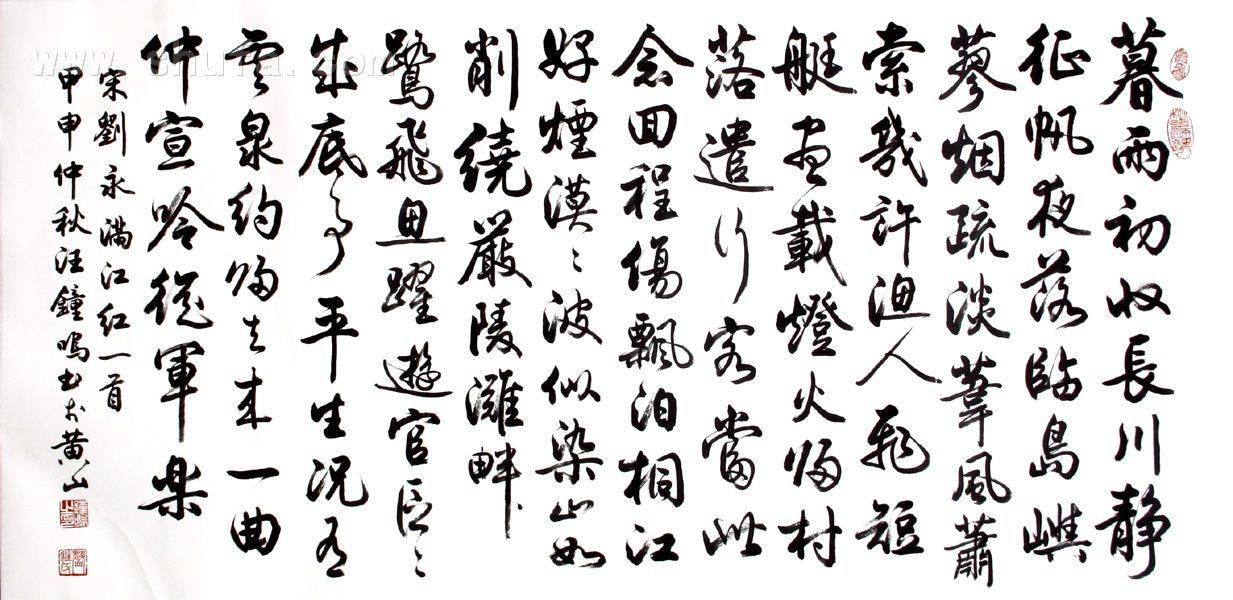 暮雨初收長川静
征帆夜落臨島嶼
蓼烟疏淡葦風蕭
索幾許漁人飛短
艇盡載燈火歸村
落遣行客當此
念回程傷飄泊桐江
好煙漠〻波似染山如
削繞嚴陵灘畔
鷺飛魚躍遊官區〻
成底事平生况有
雲泉約歸去來一曲
仲宣吟從軍樂
宋劉永滿江红一首
甲申仲秋汪鐘鳴書於黄山